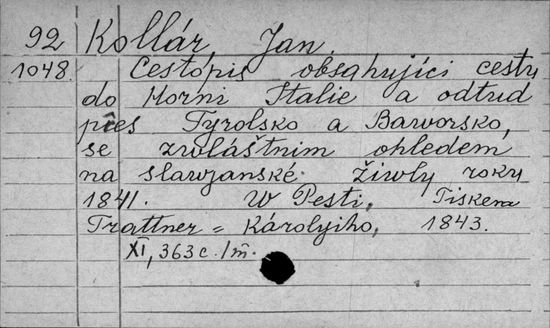 92 Kollár, Jan.
1048. Cestopis obsahujíci cestu
do Horní Italie a odtud
přes Tyrolsko a Baworsko,
se zwláštním ohledem
na slawjanské žiwly roku
1841. W Pesti, Tiskem
Trattner = Károlyiho, 1843.
XI, 363 c. /m̄.